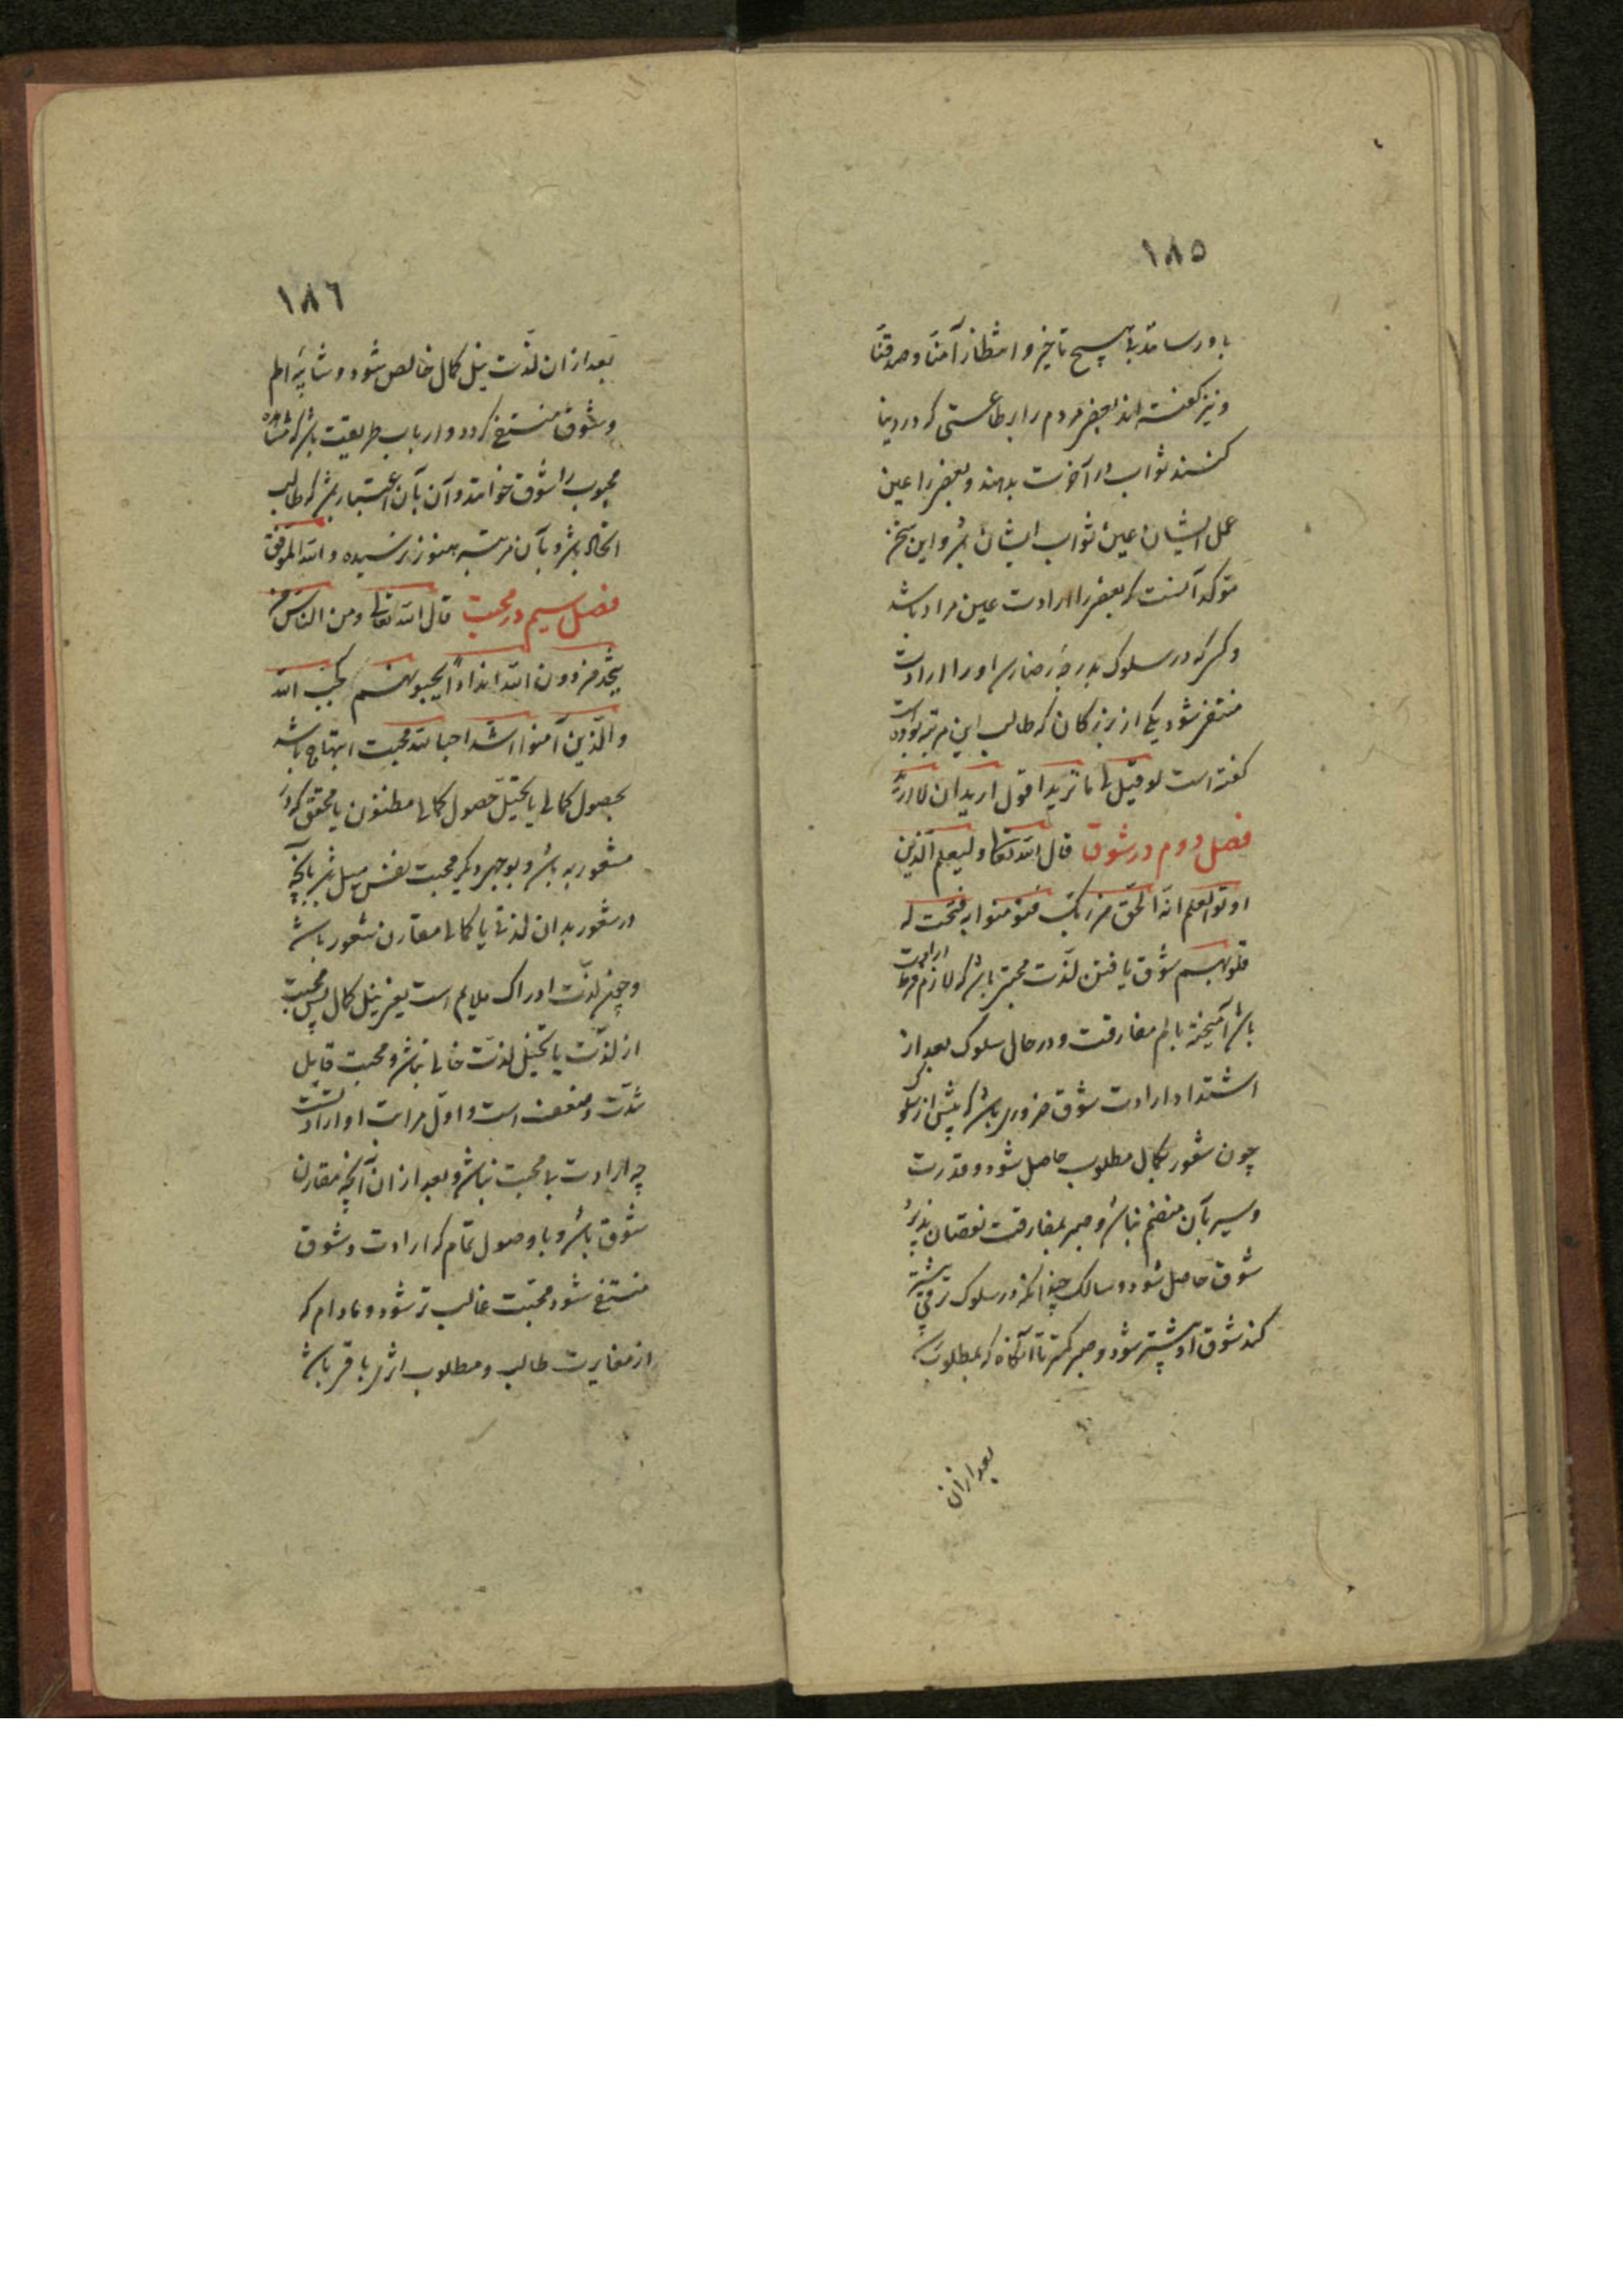 ۱۸۵
باو رسانند بی هیچ تاخیر و انتظار آمنا و صدقنا
و نیز گفته اند بعضی مردم را بر طاعتی که در دنیا
کنند ثواب در آخرت بدهند و بعضی را عین
عمل ایشان عین ثواب ایشان باشد و این سخن
موکد آنست که بعضی را ارادت عین مراد باشد
و کسی که در سلوک بدرجه رضا رسد او را ارادت
منتفی شود یکی از بزرگان که طالب این مرتبه بوده است
گفته است لو قیل لی ما ترید اقول ارید ان لا ارید
فصل دوم در شوق قال الله تعالی و لیعلم الذین
اوتوا العلم انه الحق من ربک فیؤمنوا به فتخبت له
قلوبهم شوق یافتن لذت محبتی باشد که لازم فرط ارادت
باشد آمیخته بالم مفارقت و در حال سلوک بعد از
اشتداد ارادت شوق ضروری باشد که پیش از سلوک
چون شعور بکمال مطلوب حاصل شود و قدرت
و سیر بآن منضم نباشد و صبر بمفارقت نقصان پذیرد
شوق حاصل شود و سالک چندانکه در سلوک ترقی بیشتر
کند شوق او بیشتر شود و صبر کمتر تا آنگاه که بمطلوب رسد
بعد ازان
۱۸٦
بعد ازان لذت نیل کمال خالص شود و شایبه الم
و شوق منتفی گردد و ارباب طریقت باشد که مشاهده
محبوب را شوق خوانند و آن بآن اعتبار باشد که طالب
اتحاد باشد و بآن مرتبه هنوز نرسیده و الله الموفق
فصل سیم در محبت قال الله تعالی و من الناس من
یتخذ من دون الله اندادا یحبونهم کحب الله
و الذین آمنوا اشد حبا لله محبت ابتهاج باشد
بحصول کمالی یا تخیل حصول کمالی مظنون یا محقق که در
مشعور به باشد و بوجهی دیگر محبت نفس میل باشد بآنچه
در شعور بدان لذتی یا کمالی مقارن شعور باشد
و چون لذت ادراک ملایم است یعنی نیل کمال پس محبت
از لذت یا تخیل لذت خالی نباشد و محبت قابل
شدت و ضعف است و اول مراتب او ارادتست
چه ارادت بی محبت نباشد و بعد ازان آنچه مقارن
شوق باشد و با وصول تمام که ارادت و شوق
منتفی شود محبت غالب تر شود و مادام که
از مغایرت طالب و مطلوب اثری باقی باشد